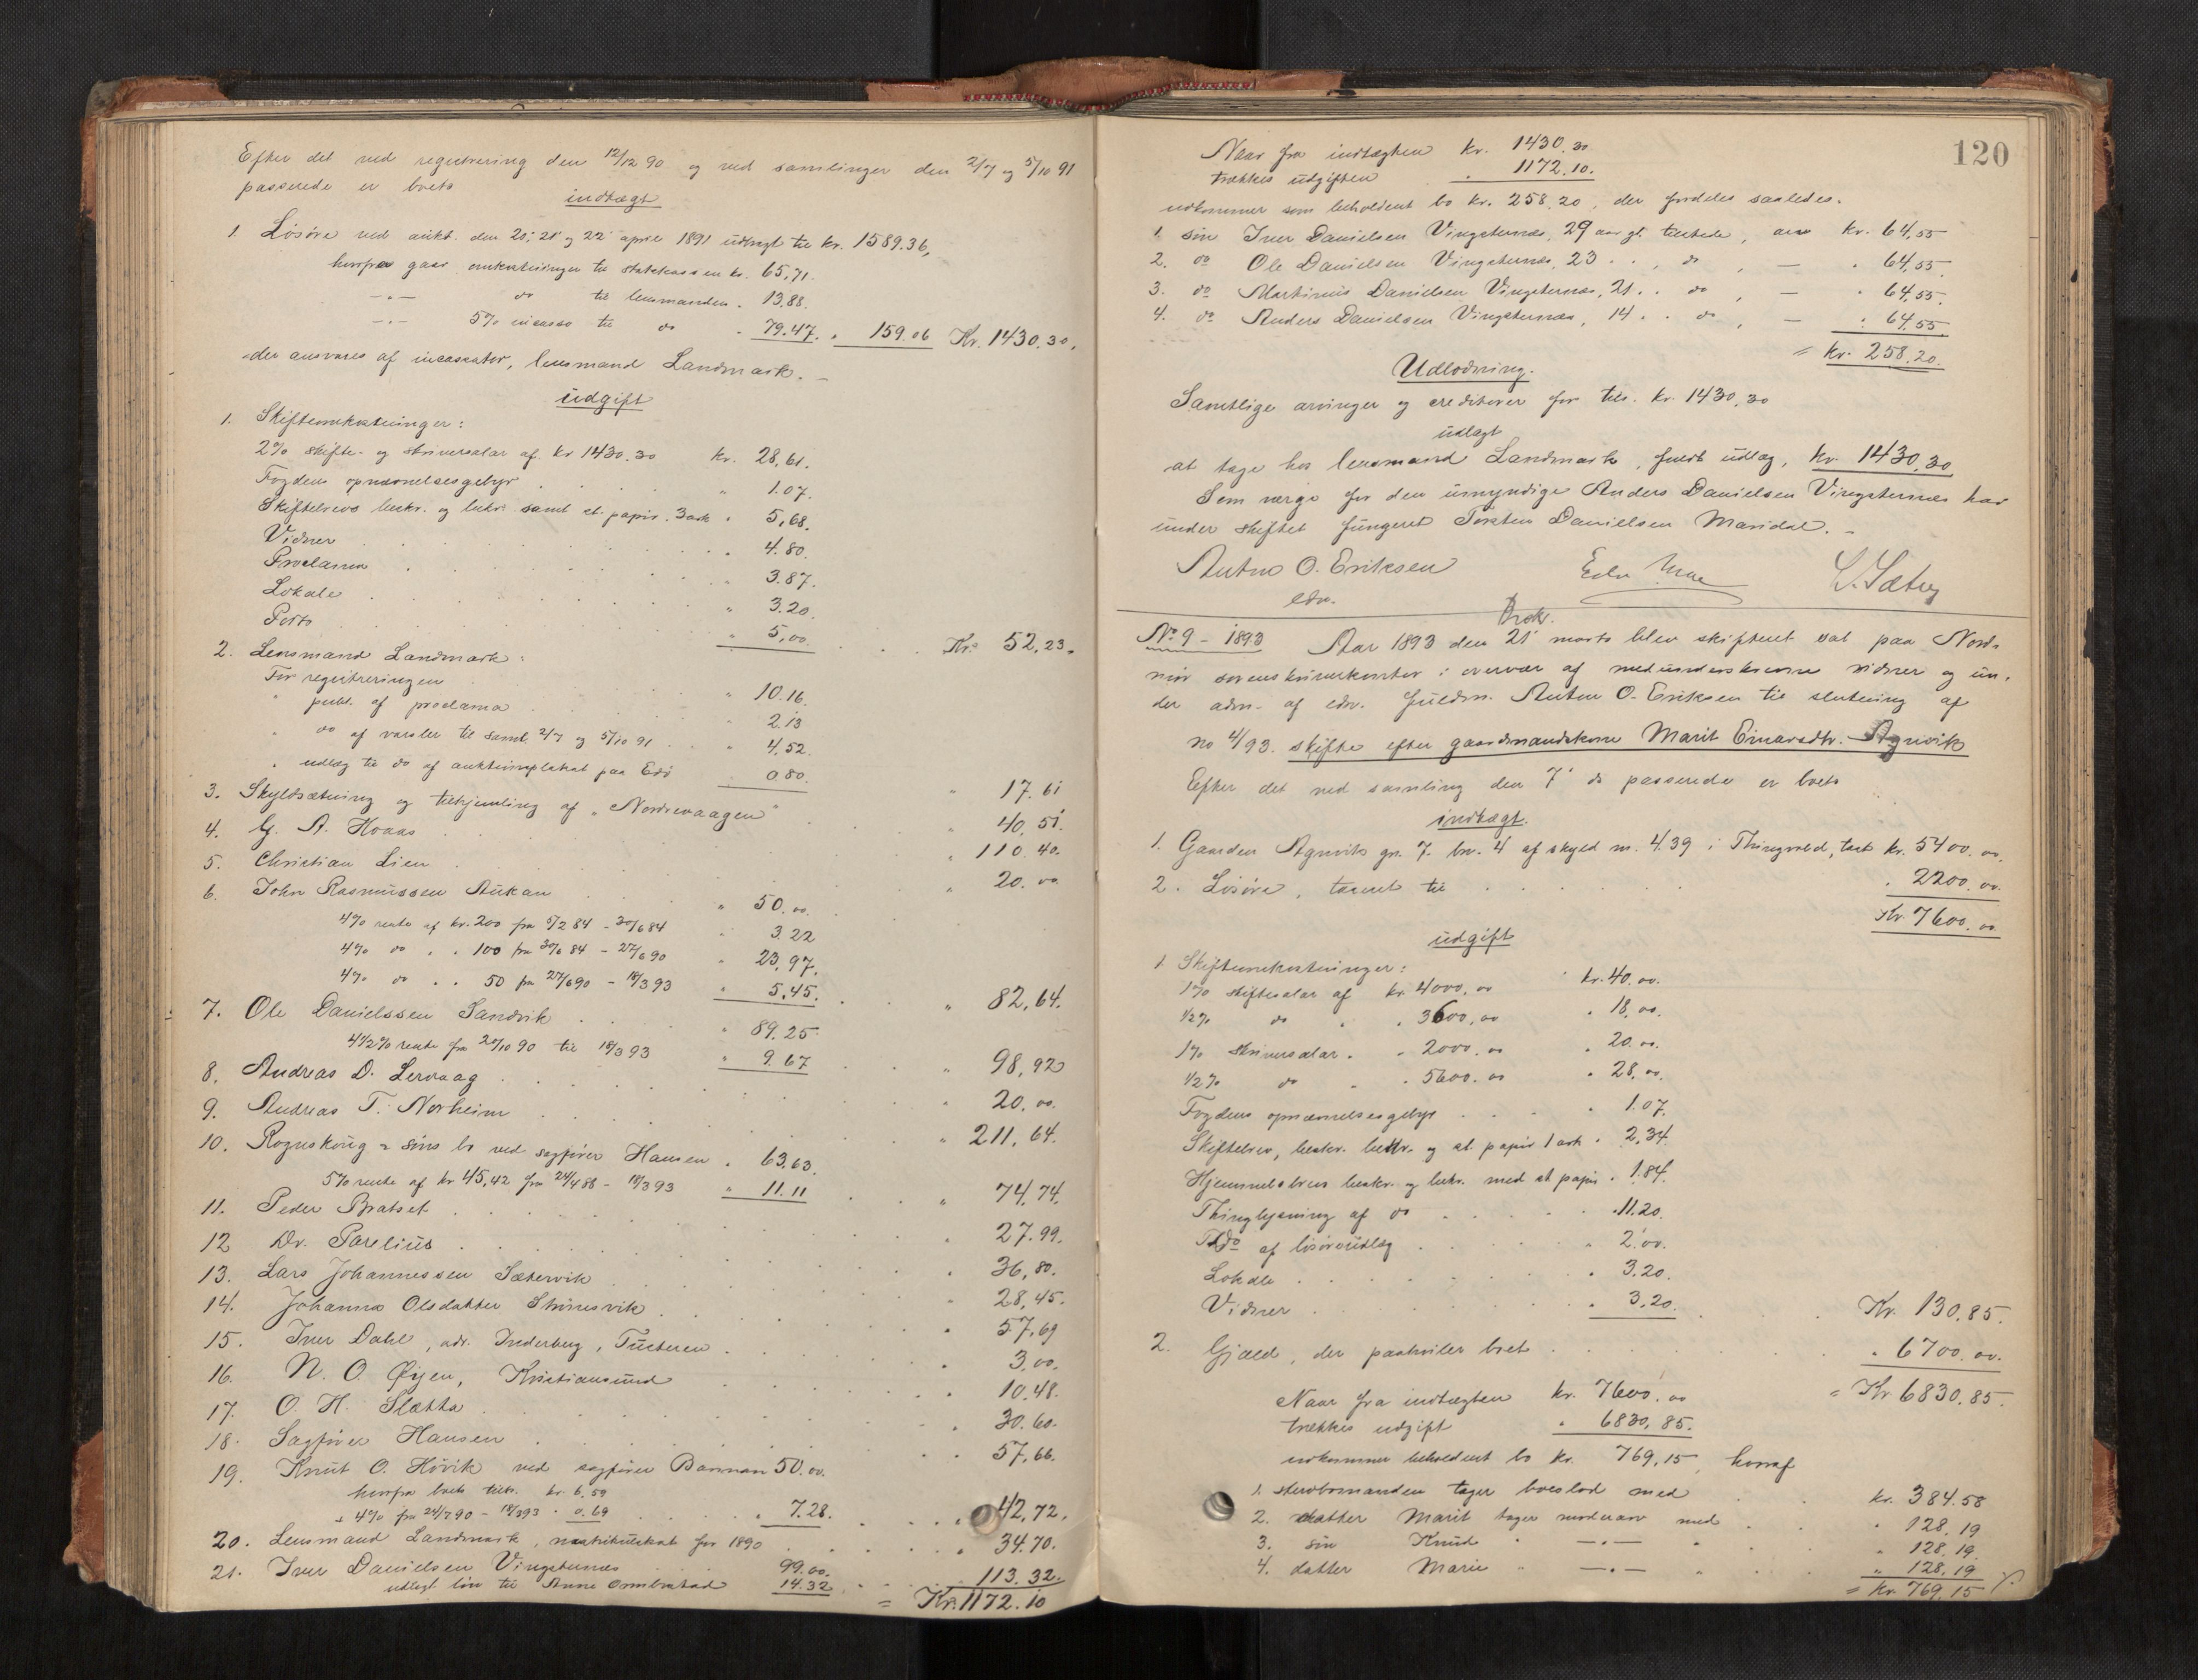 Efter det ved registrering den 12/12 90 og ved samlinger den 2/7 og 5/10 91
passerede er boets
indtægt
1. Løsøre ved aukt. den 20', 21' og 22' april 1891 udbragt til kr. 1589.36,
herfra gaar omkostninger til statskassen kr. 65,71.
—.— do til lensmanden . 13.88.
—.— 5% incasso til do . 79.47. . 159.06 Kr. 1430.30.
der ansvares af incassator, lensmand Landmark. —
udgift
1. Skifteomkostninger:
2% skifte- og skriversalar af kr 1430.30 kr. 28,61.
Fogdens opnævnelsesgebyr " 1.07.
Skiftebrevs beskr. og bekr. samt st. papir. 3 ark " 5,68.
Vidner " 4.80.
Proclama " 3.87.
Lokale " 3.20.
Porto " 5,00. Kr. 52,23.
2. Lensmand Landmark:
For registreringen " 10.16.
" publ. af proclama " 2.13
" do af varsler til saml. 2/7 og 5/10 91 " 4,52.
" udlæg til do af auktionsplakat paa Edø . 0.80. " 17.61
3. Skyldsætning og tilhjemling af „Nordrevaagen" " 40,51.
4. G. A. Hoaas " 110.40.
5. Christian Lien " 20.00
6. John Rasmussen Aukan " 50.00.
4% rente af kr. 200 fra 5/2 84 - 30/6 84 " 3.22
4% do . . 100 fra 30/6 84 - 27/6 90 " 23,97.
4% do . . 50 fra 27/6 90 - 18/3 93 " 5,45. " 82,64.
7. Ole Danielssen Sandvik " 89.25
4 1/2% rente fra 20/10 90 til 18/3 93 " 9.67 " 98,92
8. Andreas D. Lervaag " 20.00.
9. Andreas T. Norheim " 211,64.
10. Rognskoug & søns bo ved sagfører Hansen . 63,63.
5% rente af kr 45,42 fra 24/4 88 - 18/3 93 " 11.11 " 74,74.
11. Peder Bratset . 27.99.
12 Dr. Parelius . 36,80.
13. Lars Johannessen Sætervik . 28,45.
14. Johanna Olsdatter Skinesvik . 57,69
15. Iver Dahl, adr. Inderberg, Tusteren . 3,00.
16. N. O. Øyen, Kristiansund . 10.48.
17. O. H. Slatta . 30.60.
18. Sagfører Hansen . 57,66.
19. Knut O. Høvik ved sagfører Barman 50.00.
herfra boets tilk. kr. 6.59
+ 4% fra 24/7 90 - 18/3 93 . 0.69 . 7.28. . 42,72.
20. Lensmand Landmark, matrikulskat for 1890 . 34.70.
21. Iver Danielsen Vingsternes 99.00.
udlagt løn til Anne Ormbostad 14.32 113.32.
= Kr. 1172.10
120
Naar fra indtægten kr. 1430.30
trækkes udgiften . 1172.10.
udkommer som beholdent bo kr. 258,20, der fordeles saaledes.
1. søn Iver Danielsen Vingsternes, 29 aar gl. tilstede, arv kr. 64,55
2. do Ole Danielsen Vingsternes, 23 . . , do , — . 64,55.
3. do Martinus Danielsen Vingsternes, 21 . . do , — . 64,55.
4. do Anders Danielsen Vingsternes, 14 . . do , — . 64,55
= kr. 258,20.
Udlodning.
Samtlige arvinger og creditorer for tils. kr. 1430,30
udlagt
at tage hos lensmand Landmark, fuldt udlæg, kr. 1430,30
Som værge for den umyndige Anders Danielsen Vingsternes har
under skiftet fungeret Torsten Danielsen Mardal. —
Anton O. Eriksen
edv. L. Sætrey
Prok.
No 9 - 1893 Aar 1893 den 21' marts blev skifteret sat paa Nord-
mør sorenskriverkontor i overvær af medunderskrevne vidner og un-
der adm. af edv. fuldm. Anton O. Eriksen til slutning af
no 4/93. skifte efter gaardmandskone Marit Einarsdtr. Agnvik
Efter det ved samling den 7' ds passerede er boets
indtægt.
1. Gaarden Agnvik gn. 7. bn. 4 af skyld m. 4.39 i Thingvold, taxt kr. 5400.00.
2. Løsøre, taxeret til . 2200.00.
Kr. 7600.00.
udgift
1. Skifteomkostninger:
1% skiftesalar af kr. 4000,00 kr. 40.00.
1/2% do . . 3600,00 . 18,00.
1% skriversalar . . 2000.00 . 20.00.
1/2% do . . 5600.00 . 28,00.
Fogdens opnævnelsesgebyr . 1.07.
Skiftebrev, beskr. bekr. og st. papir 1 ark . 2,34.
Hjemmelsbrevs beskr. og bekr. med st. papir . 1.84.
Thinglysning af do . 11.20.
do af løsøreudlæg . 2.00.
Lokale . 3.20.
Vidner . 3,20. Kr. 130.85.
2. Gjæld, der paahviler boet . 6700.00.
= Kr 6830.85.
Naar fra indtægten kr. 7600.00
trækkes udgift . 6830,85.
udkommer beholdent bo kr. 769,15, hvoraf
1. sterbomanden tager boeslod med kr. 384.58
2. datter Marit tager modrearv med . 128,19
3. søn Knud " —.— " . 128.19.
4. datter Marie " —.— " . 128.19
= kr. 769.15